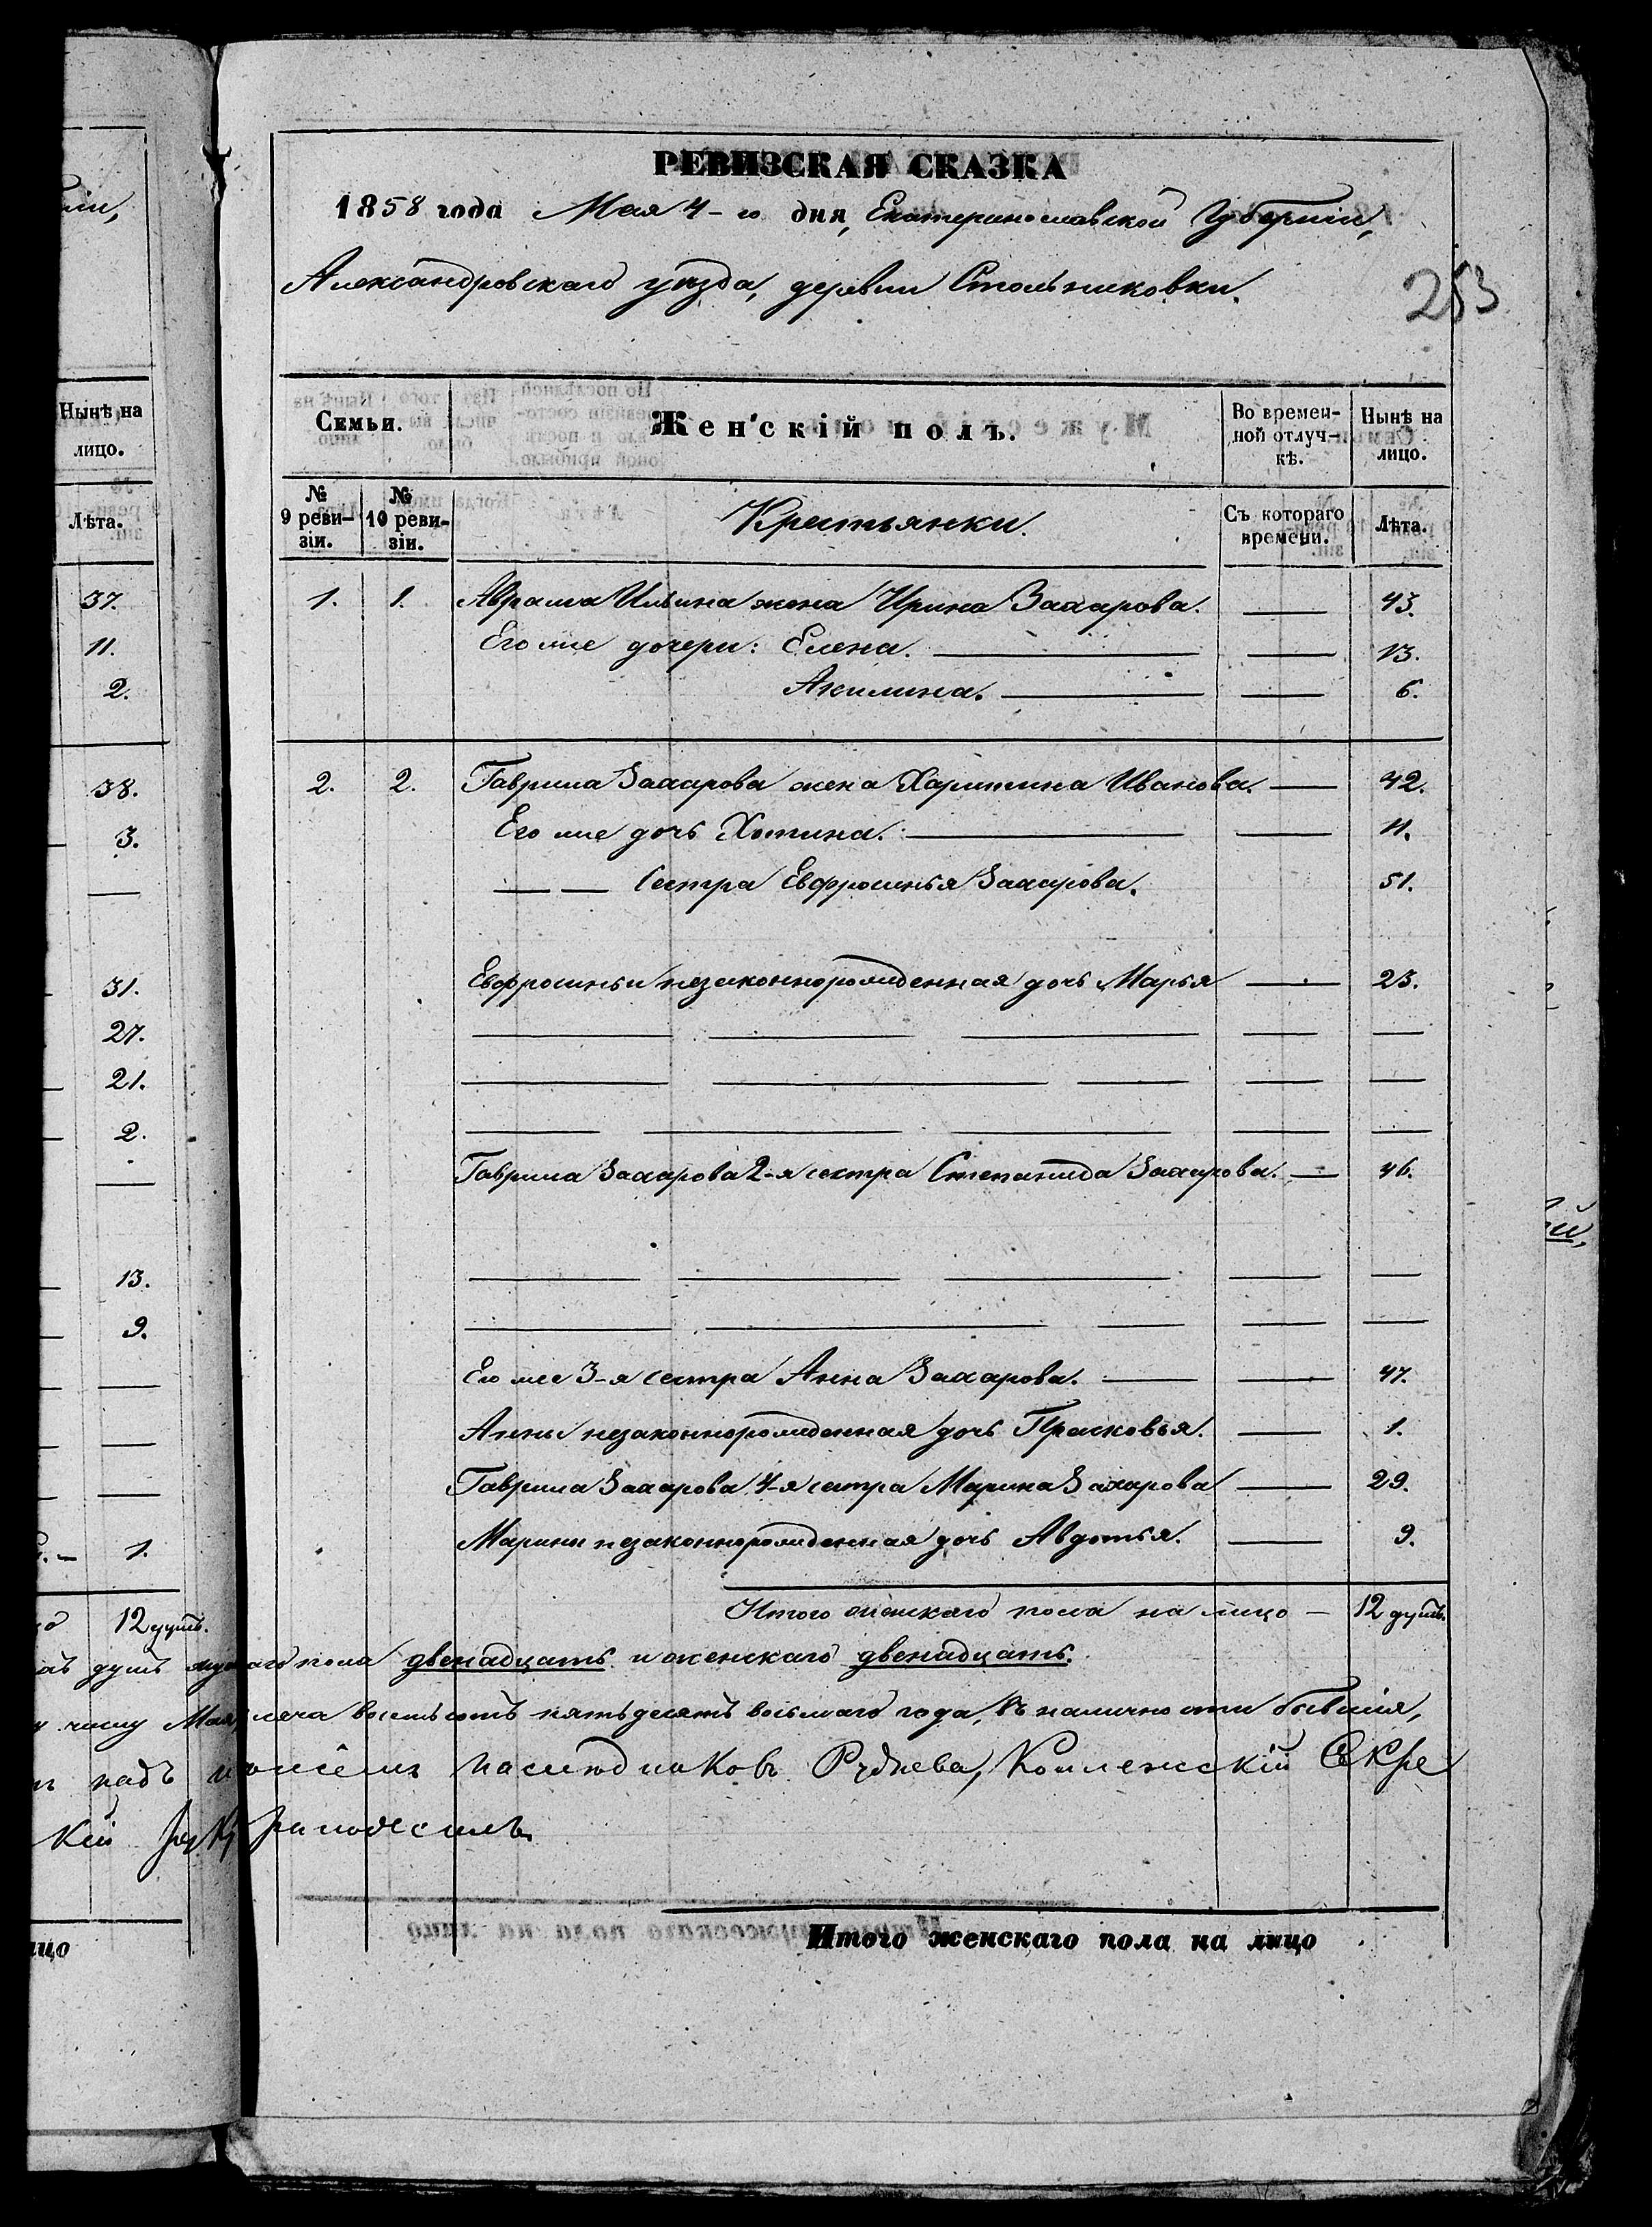 РЕВИЗСКАЯ СКАЗКА
1858 года Мая 4-го дня, Екатеринославской Губерніи,
Александровскаго уѣзда, деревни Стольниковки.
253
Нынѣ на лицо.
Лѣта.
37.
11.
2.
38.
3.
31.
27.
21.
2.
13.
9.
1.
12 душъ.
Семьи.
Женскій полъ.
Во временной отлучкѣ.
Нынѣ на лицо.
№ 9 ревизіи.
№ 10 ревизіи.
Крестьянки.
Съ котораго времени.
Лѣта.
1. 1. Аврама Ильина жена Ирина Захарова. — 43.
Его же дочери: Елена. — — 13.
Акилина. — — 6.
2. 2. Гаврила Захарова жена Харитина Иванова. — 42.
Его же дочь Хотина. — — 11.
— — Сестра Евфросинья Захарова. 51.
Евфросиньи незаконнорожденная дочь Марья — 23.
— — — — —
— — — — —
— — — — —
Гаврила Захарова 2-я сестра Степанида Захарова. — 46.
— — — — —
— — — — —
Его же 3-я сестра Анна Захарова. — — 47.
Анны незаконнорожденная дочь Прасковья. — 1.
Гаврила Захарова 4-я сестра Марина Захарова — 29.
Марины незаконнорожденная дочь Авдотья. — 9.
Итого женскаго пола на лицо — 12 душъ.
душъ пола двенадцать и женскаго двенадцать.
числу Мая восемьсотъ пятьдесятъ восьмаго года, въ наличности бывшія,
надъ наследниковъ Руднева, Коллежскій Секре
кій
Итого женскаго пола на лицо